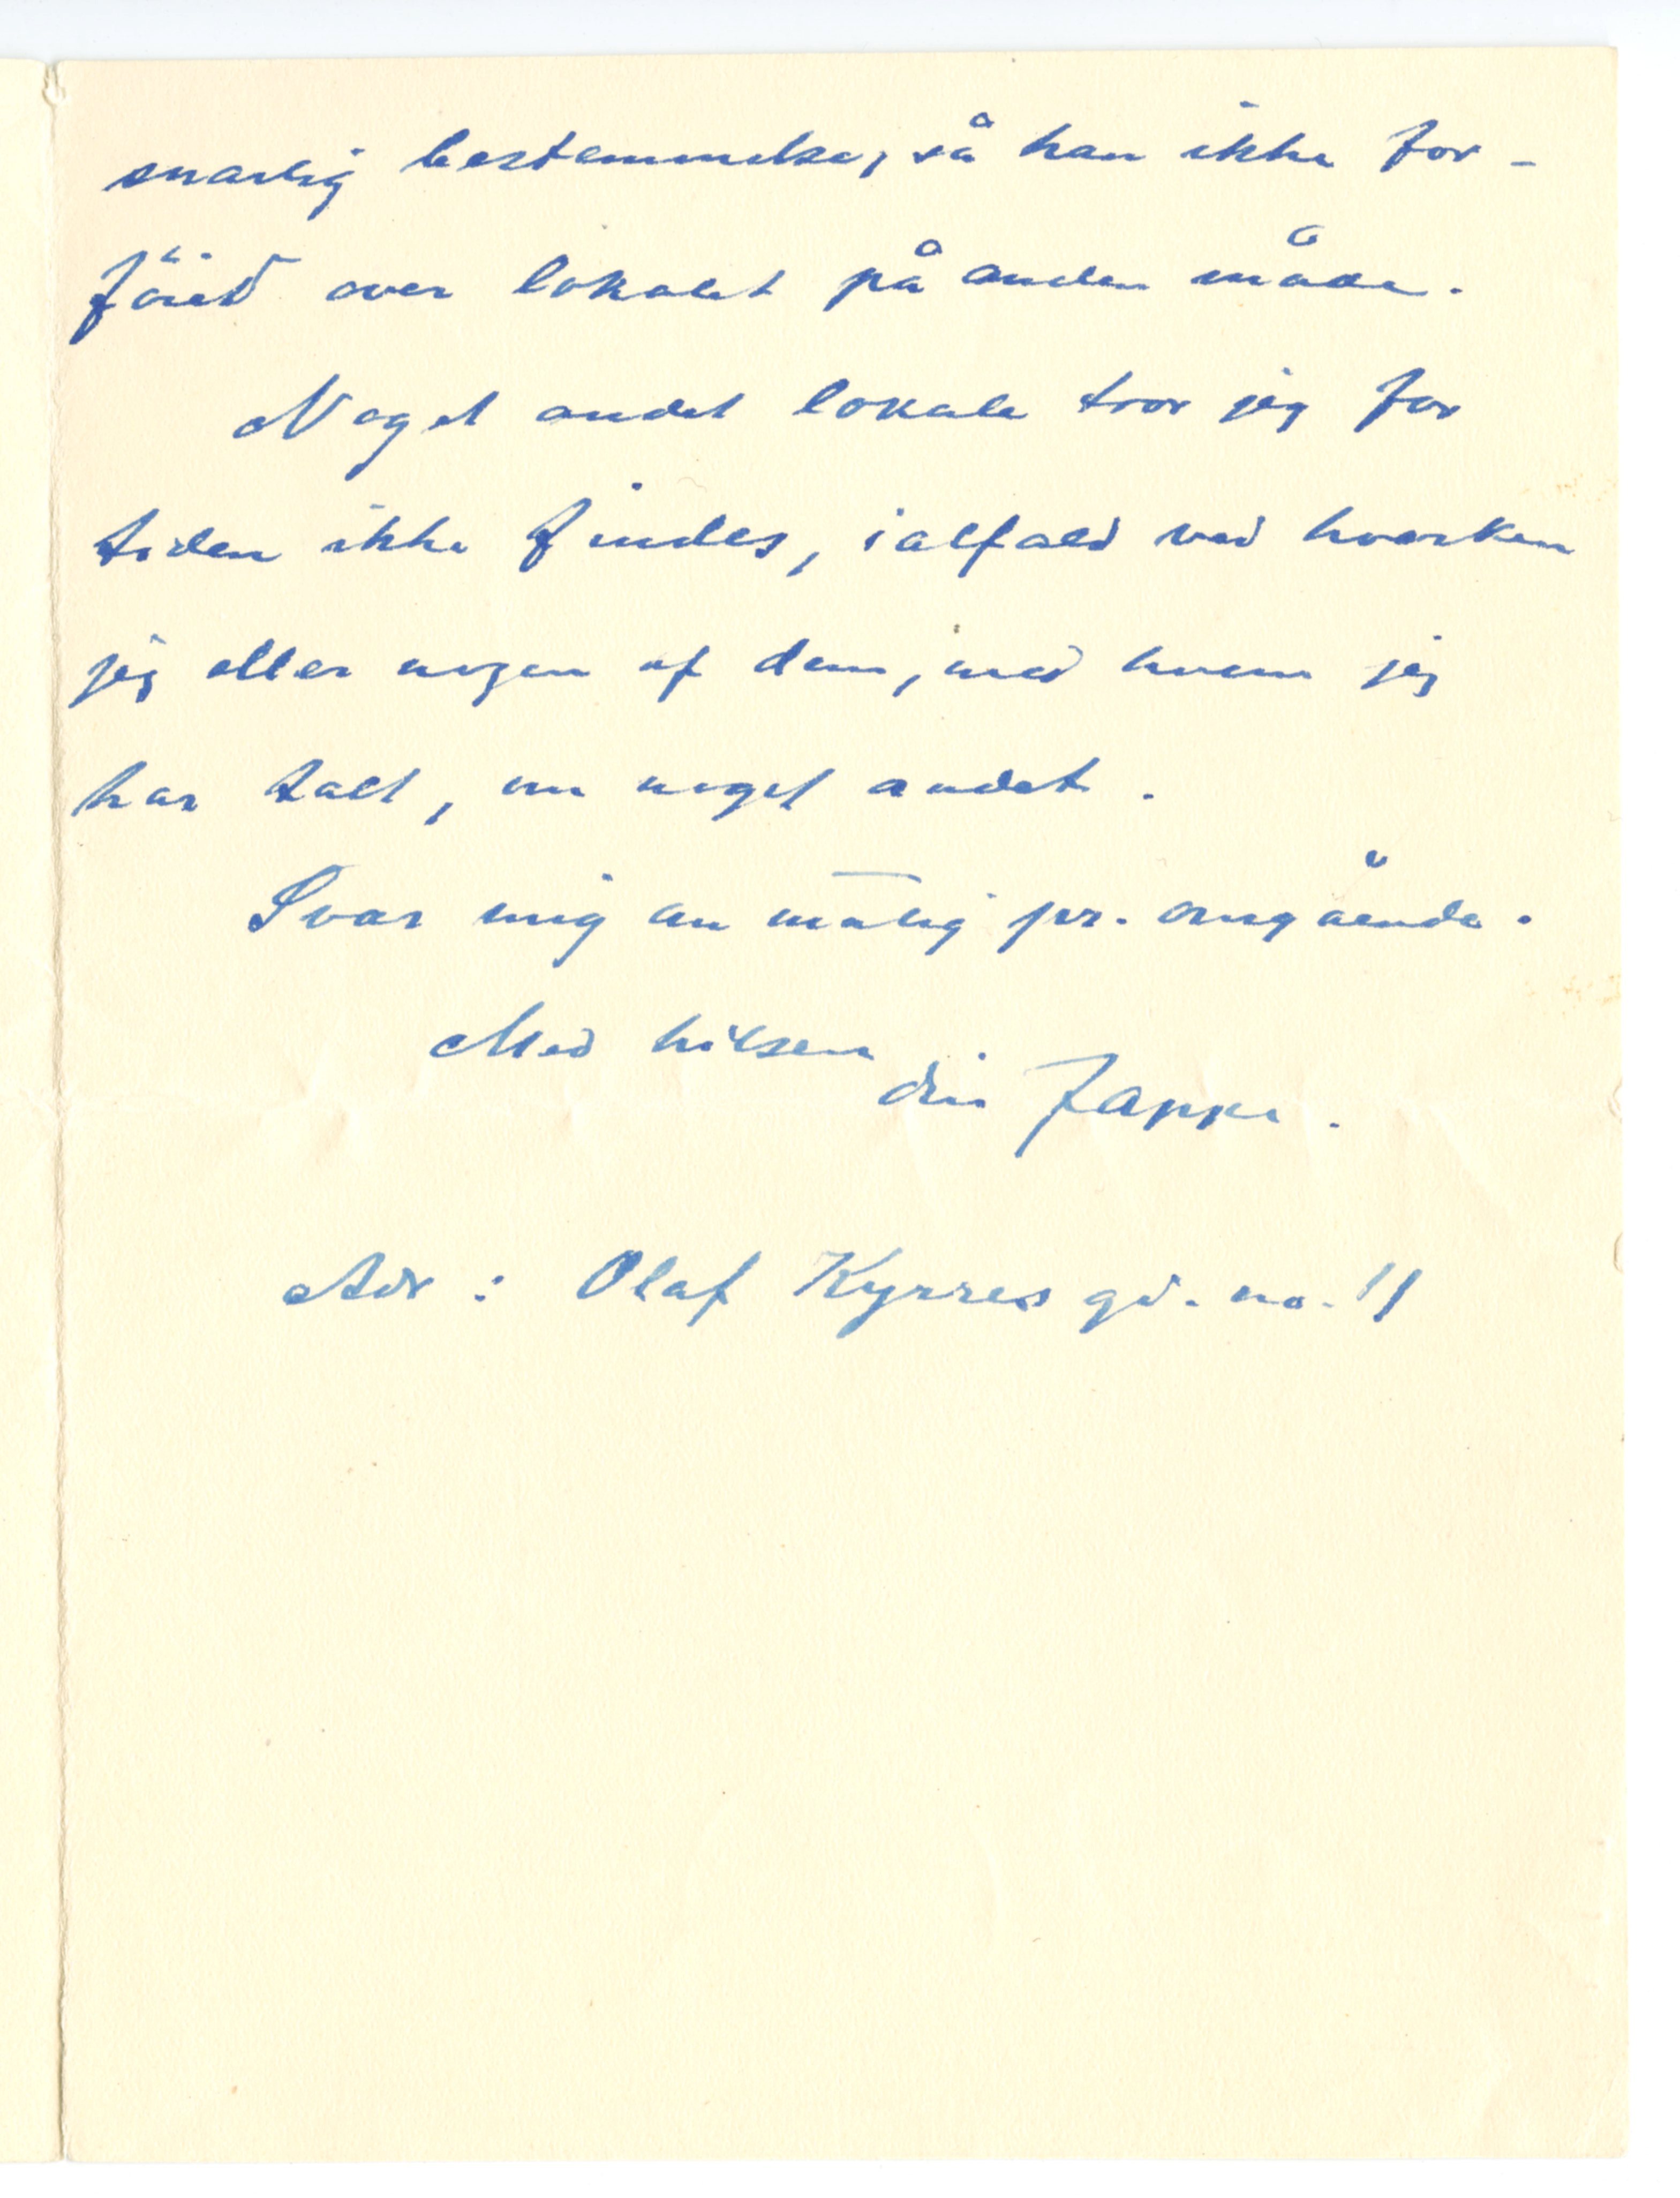 snarlig bestemmelse, så han ikke for-
föied over lokalet på anden måde.
Noget andet lokale tror jeg for
tiden ikke findes, ialfald ved hverken
jeg eller nogen af dem, med hvem jeg
har talt, om noget andet.
Svar mig an mulig pr. omgående.
Med hilsen
din Jappe.
Adr: Olaf Kyrres gd. no. 11